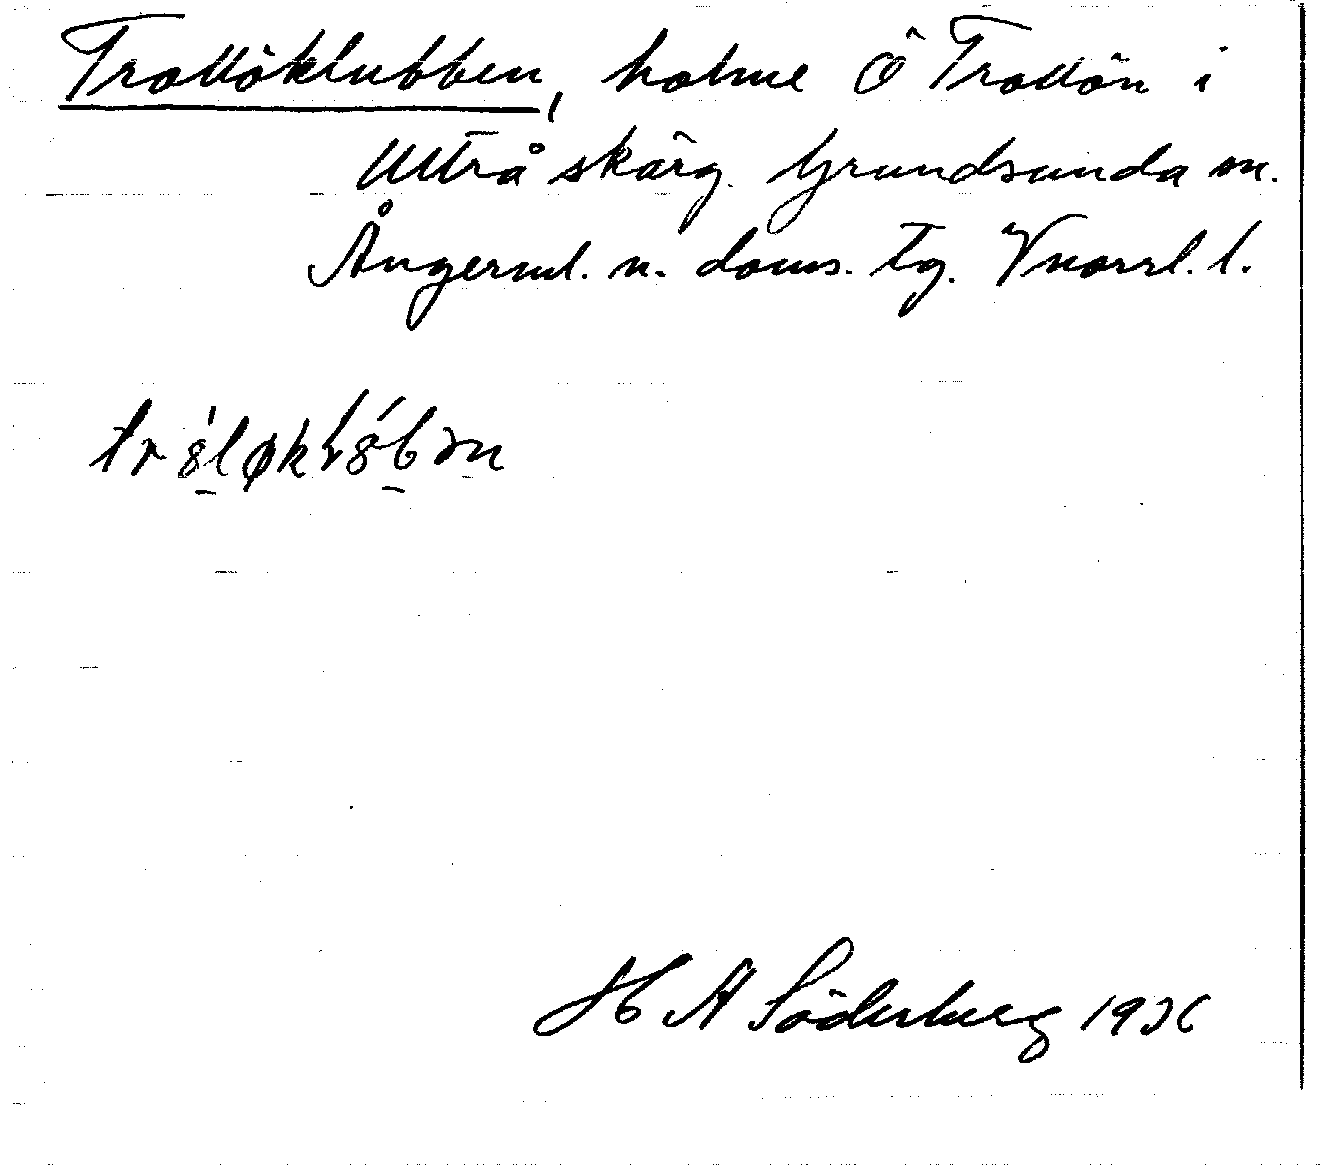 Trollöklubben, holme Ö Trollön i
Ultrå skärg. Grundsunda sn.
Ångerml. n. doms. tg. Vnorrl. l.
H A Söderberg